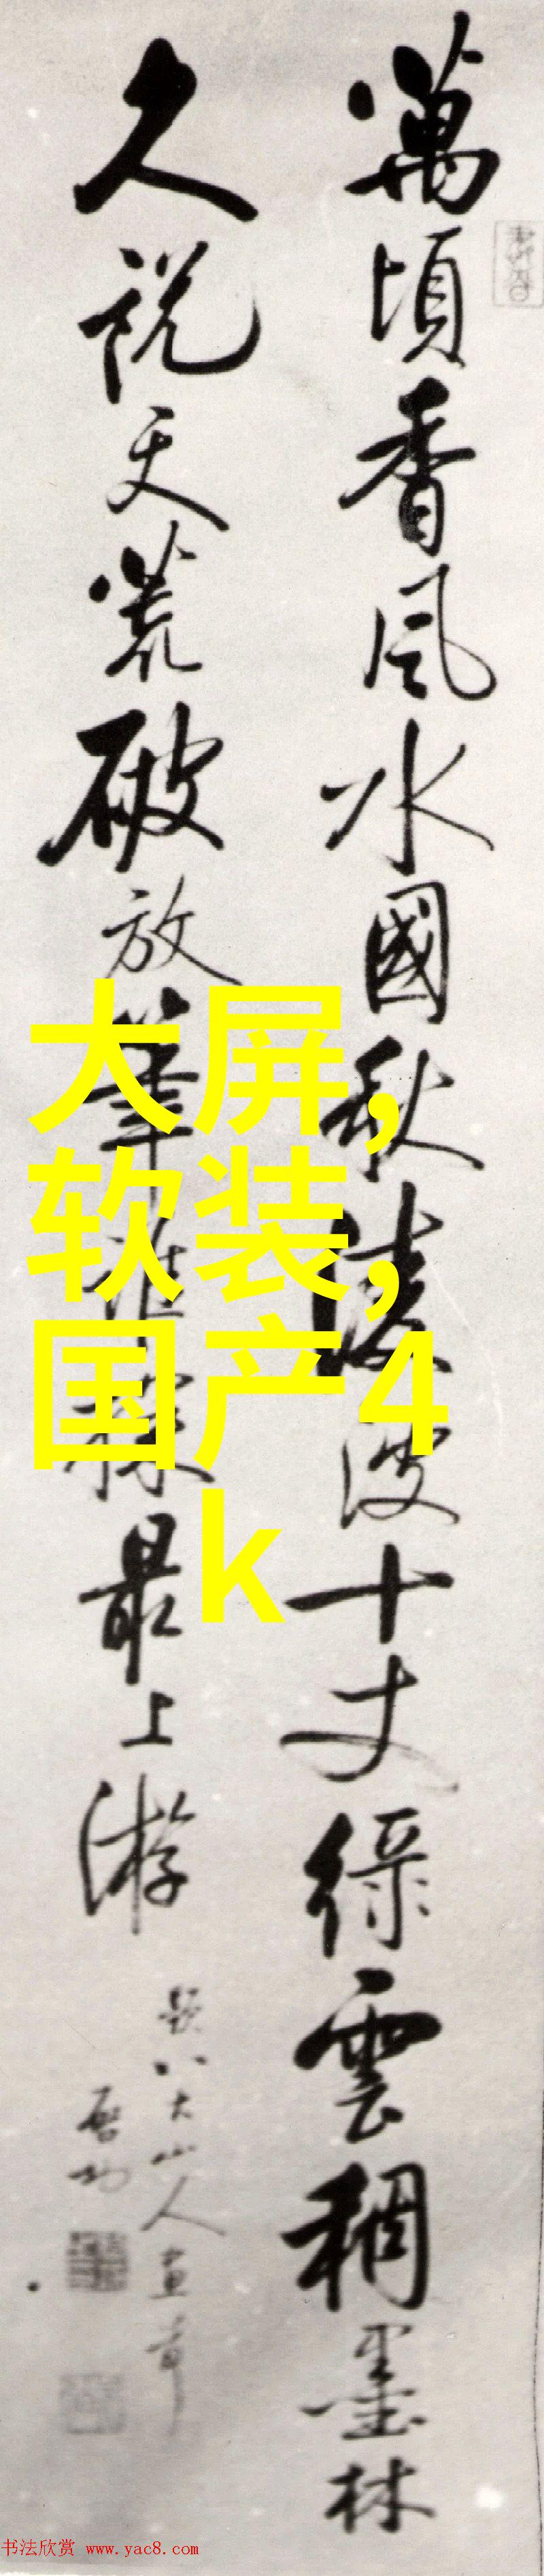 萬頃香風水國秋淩波十丈綠雲稠墨林
久說天荒破放筆誰探最上游
題八大山人畫卷
啟功
大屏,
软装,
国产4
k
书法欣赏 www.yac8.com